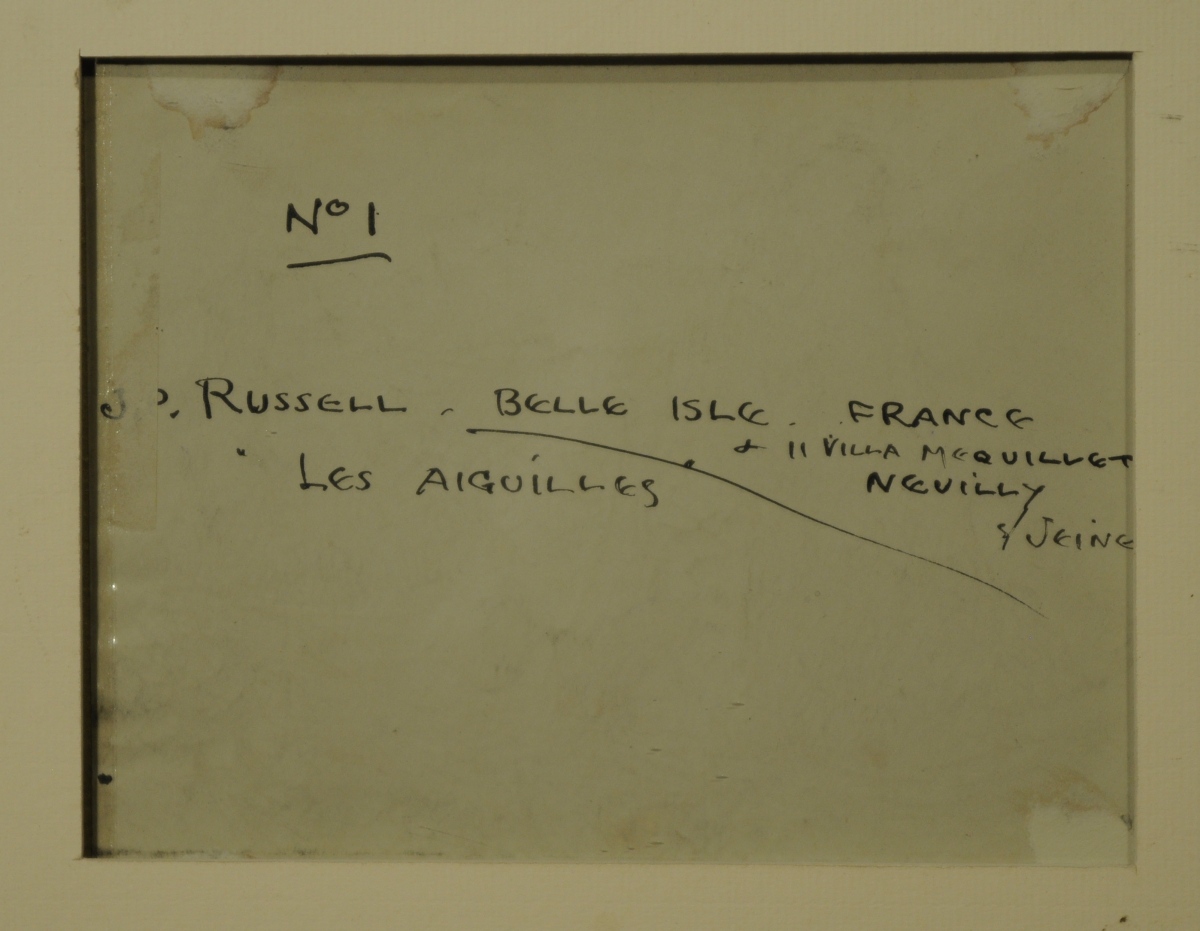 Nº 1
J P. RUSSELL - BELLE ISLE. FRANCE
& 11 VILLA MEQUILLET
" LES AIGUILLES
NEUILLY
S/ SEINE